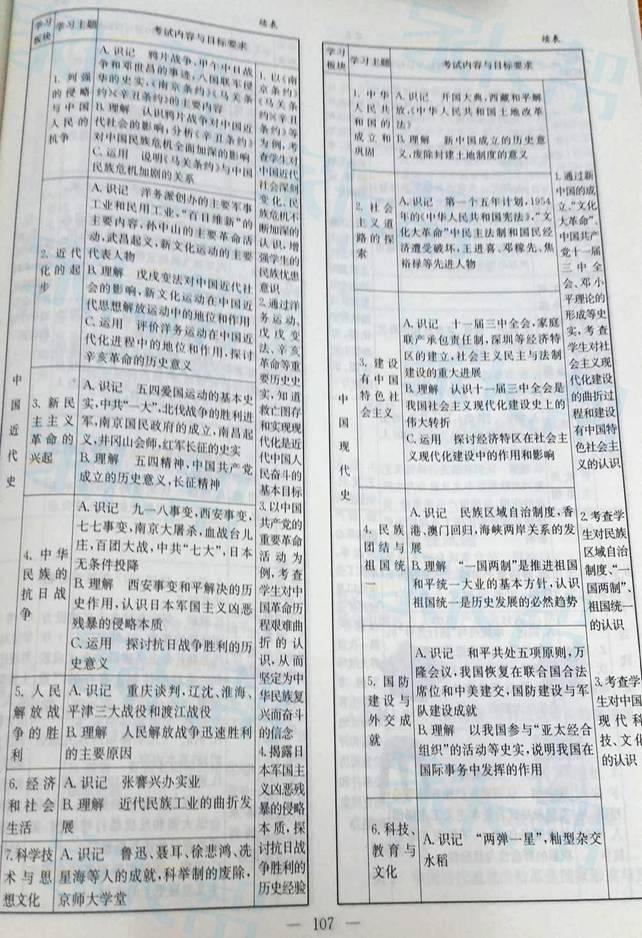 续表
学习板块
学习主题
考试内容与目标要求
中国近代史
1. 列强
的侵略
与中国
人民的
抗争
A. 识记 鸦片战争,甲午中日战
争和邓世昌的事迹,八国联军侵
华的史实,《南京条约》《马关条
约》《辛丑条约》的主要内容
B. 理解 认识鸦片战争对中国近
代社会的影响,分析《辛丑条约》
对中国民族危机全面加深的影响
C. 运用 说明《马关条约》与中国
民族危机加剧的关系
2. 近代
化的起
步
A. 识记 洋务派创办的主要军事
工业和民用工业,“百日维新”的
主要内容,孙中山的主要革命活
动,武昌起义,新文化运动的主要
代表人物
B. 理解 戊戌变法对中国近代社
会的影响,新文化运动在中国近
代思想解放运动中的地位和作用
C. 运用 评价洋务运动在中国近
代化进程中的地位和作用,探讨
辛亥革命的历史意义
3. 新民
主主义
革命的
兴起
A. 识记 五四爱国运动的基本史
实,中共“一大”,北伐战争的胜利进
军,南京国民政府的成立,南昌起
义,井冈山会师,红军长征的史实
B. 理解 五四精神,中国共产党
成立的历史意义,长征精神
4. 中华
民族的
抗日战
争
A. 识记 九一八事变,西安事变,
七七事变,南京大屠杀,血战台儿
庄,百团大战,中共“七大”,日本
无条件投降
B. 理解 西安事变和平解决的历
史作用,认识日本军国主义凶恶
残暴的侵略本质
C. 运用 探讨抗日战争胜利的历
史意义
5. 人民
解放战
争的胜
利
A. 识记 重庆谈判,辽沈、淮海、
平津三大战役和渡江战役
B. 理解 人民解放战争迅速胜利
的主要原因
6. 经济
和社会
生活
A. 识记 张謇兴办实业
B. 理解 近代民族工业的曲折发
展
7. 科学技
术与思
想文化
A. 识记 鲁迅、聂耳、徐悲鸿、冼
星海等人的成就,科举制的废除,
京师大学堂
1. 以《南
京条约》
《马关条
约》《辛丑
条约》等
为例,考
查学生对
中国近代
社会深刻
变化、民
族危机不
断加深的
认识,增
强学生的
民族忧患
意识
2. 通过洋
务运动、
戊戌变
法、辛亥
革命等重
要历史史
实,知道
救亡图存
和实现现
代化是近
代中国人
民奋斗的
基本目标
3. 以中国
共产党的
重要革命
活动为
例,考查
学生对中
国革命历
程艰难曲
折的认
识,从而
坚定为中
华民族复
兴而奋斗
的信念
4. 揭露日
本军国主
义凶恶残
暴的侵略
本质,探
讨抗日战
争胜利的
历史经验
续表
学习板块
学习主题
考试内容与目标要求
中国现代史
1. 中华
人民共
和国的
成立和
巩固
A. 识记 开国大典,西藏和平解
放,《中华人民共和国土地改革
法》
B. 理解 新中国成立的历史意
义,废除封建土地制度的意义
2. 社会
主义道
路的探
索
A. 识记 第一个五年计划,1954
年的《中华人民共和国宪法》,“文
化大革命”中民主法制和国民经
济遭受破坏,王进喜、邓稼先、焦
裕禄等先进人物
3. 建设
有中国
特色社
会主义
A. 识记 十一届三中全会,家庭
联产承包责任制,深圳等经济特
区的建立,社会主义民主与法制
建设的重大进展
B. 理解 认识十一届三中全会是
我国社会主义现代化建设史上的
伟大转折
C. 运用 探讨经济特区在社会主
义现代化建设中的作用和影响
4. 民族
团结与
祖国统
一
A. 识记 民族区域自治制度,香
港、澳门回归,海峡两岸关系的发
展
B. 理解 “一国两制”是推进祖国
和平统一大业的基本方针,认识
祖国统一是历史发展的必然趋势
5. 国防
建设与
外交成
就
A. 识记 和平共处五项原则,万
隆会议,我国恢复在联合国合法
席位和中美建交,国防建设与军
队建设成就
B. 理解 以我国参与“亚太经合
组织”的活动等史实,说明我国在
国际事务中发挥的作用
6. 科技、
教育与
文化
A. 识记 “两弹一星”,籼型杂交
水稻
1. 通过新
中国的成
立、“文化
大革命”、
中国共产
党十一届
三中全
会、邓小
平理论的
形成等史
实,考查
学生对社
会主义现
代化建设
的曲折过
程和建设
有中国特
色社会主
义的认识
2. 考查学
生对民族
区域自治
制度、“一
国两制”、
祖国统一
的认识
3. 考查学
生对中国
现代科
技、文化
的认识
— 107 —